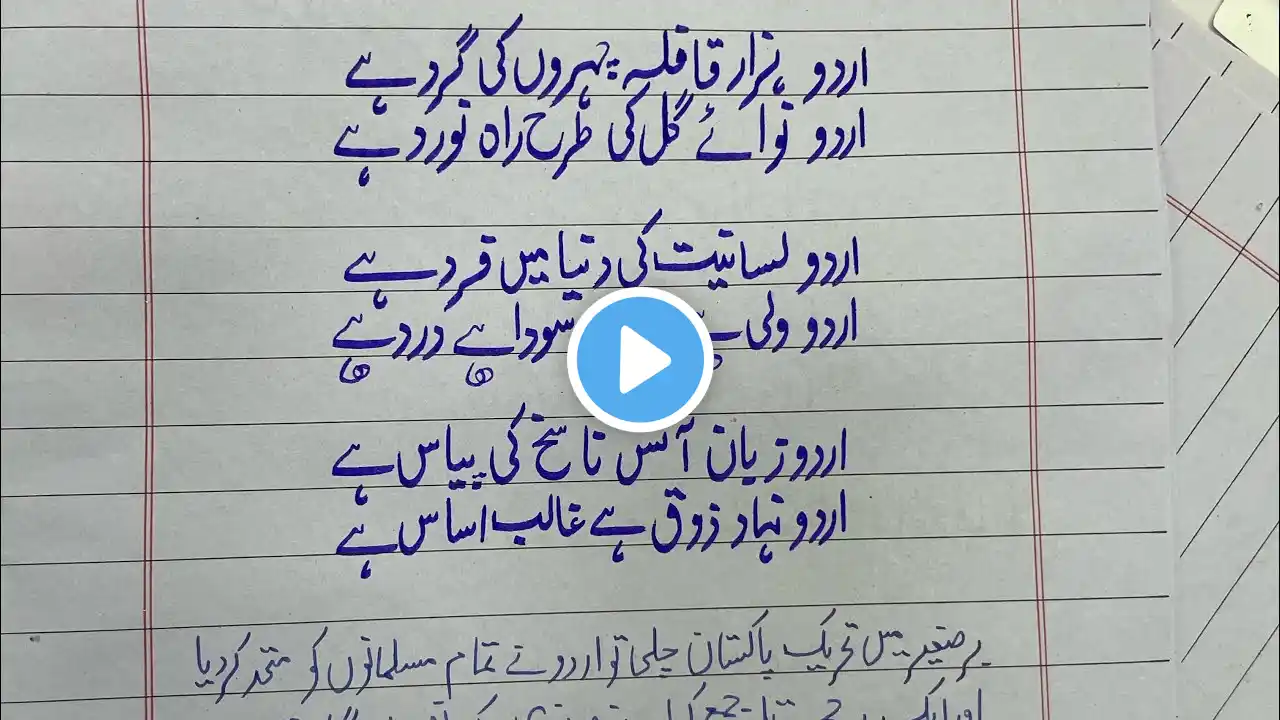 اردو ہزار قافلہ پہروں کی گرد ہے
اردو نوائے گل کی طرح راہ نورد ہے
اردو لسانیت کی دنیا میں فرد ہے
اردو ولی سودا ہے درد ہے
اردو زبان آتس ناسخ کی پیاس ہے
اردو نہاد ذوق ہے غالب اساس ہے
برصغیر میں تحریک پاکستان چلی تو اردو نے تمام مسلمانوں کو متحد کر دیا